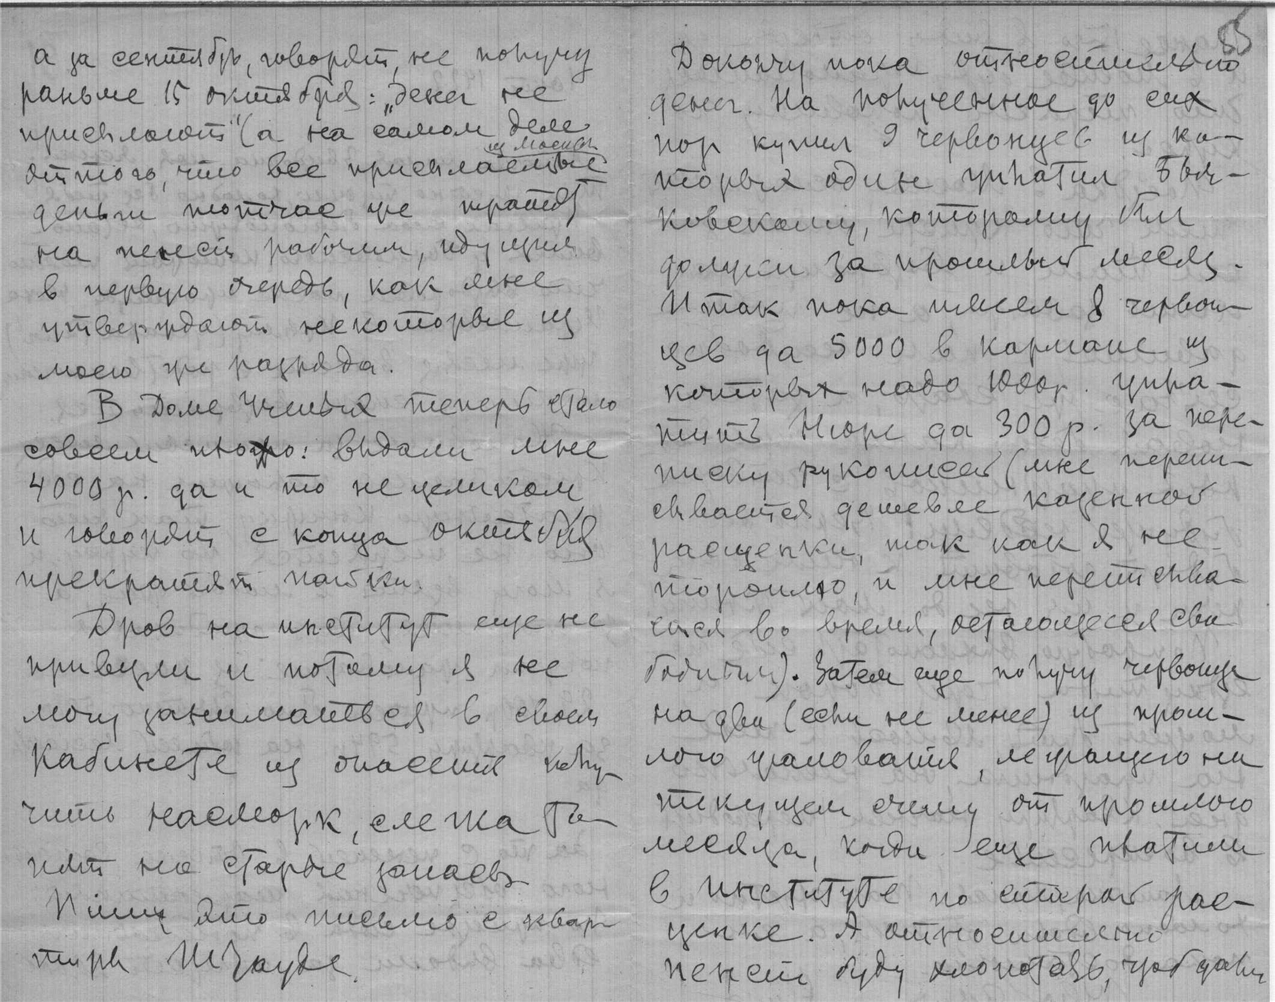 а за сентябрь, говорят, не получу
раньше 15 октября: „денег не
присылают" (а на самом деле
из Москвы
оттого, что все присылаемые
деньги тотчас же тратят
на пенсии рабочим, идущим
в первую очередь, как мне
утверждают некоторые из
моего же разряда.
В Доме Ученых теперь стало
совсем плохо: выдали мне
4000 р. да и то не целиком
и говорят с конца октября
прекратят пайки.
Дров на институт еще не
привезли и потому я не
могу заниматься в своем
кабинете из опасения полу-
чить насморк, слегка то-
пят на старые запасы.
Пишу это письмо с квар-
тиры
55
Докончу пока относительно
денег. На полученное до сих
пор купил 9 червонцев из ко-
торых один уплатил Быч-
ковскому, которому был
должен за прошлый месяц.
Итак пока имеем 8 червон-
цев да 5000 в кармане из
которых надо 1000 р. упла-
тить Нюре да 300 р. за пере-
писку рукописей (мне перепи-
сывается дешевле казенной
расценки, так как я не
тороплю, и мне переписыва-
ется во время, остающееся сво-
бодным). Затем еще получу червонца
на два (если не менее) из прош-
лого жалованья, лежащего на
текущем счету от прошлого
месяца, когда еще платили
в Институте по старой рас-
ценке. А относительно
пенсии буду хлопотать, чтоб дали